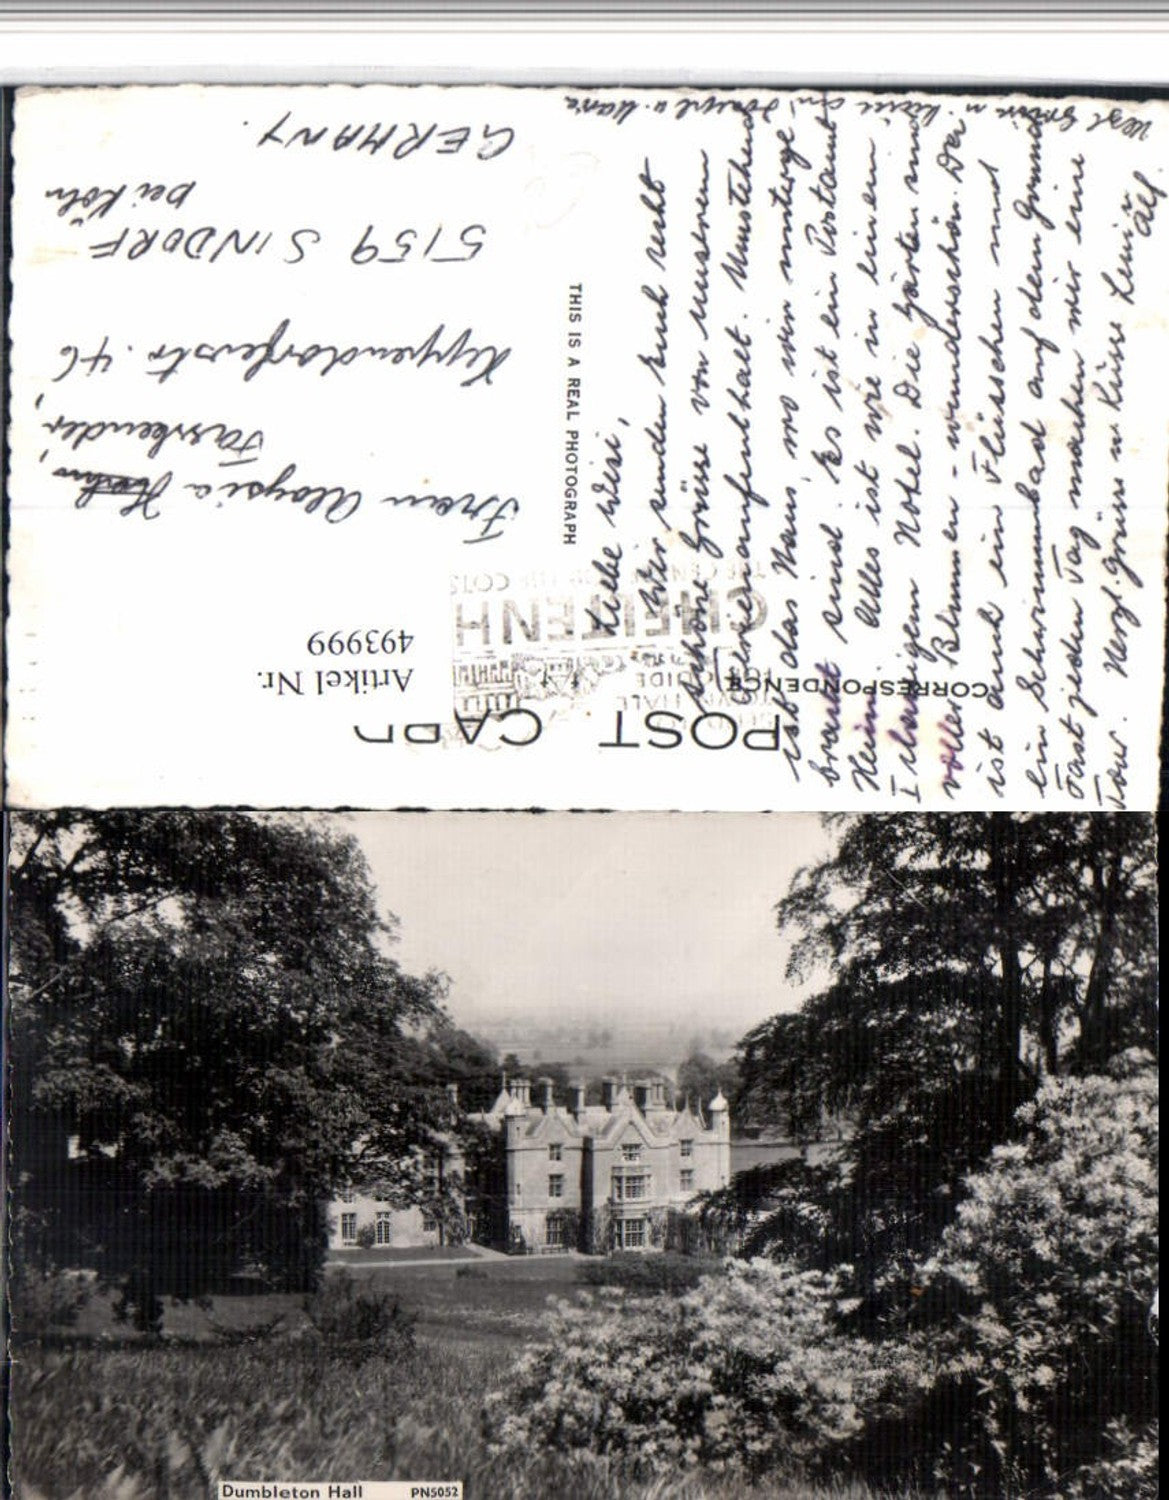 POST CARD
CORRESPONDENCE
Artikel Nr.
493999
SEND
TOWN HALL
GUIDE
CHELTENH
THE CENTRE FOR THE COTS
THIS IS A REAL PHOTOGRAPH
Frau Aloysia
Fassbender,
Heppendorferstr. 46
5159 SINDORF
bei Köln
GERMANY.
Liebe Wisi,
Wir senden Euch recht
schöne Grüsse von unserem
Ferienaufenthalt. Umstehend
ist das Haus, wo wir unterge
bracht sind. Es ist ein Postamt
Heim. Alles ist wie in einem
I klassigen Hotel. Die Gärten sind
voller Blumen - wunderschön. Da
ist auch ein Flüsschen und
ein Schwimmbad auf dem Grund
Fast jeden Tag machen wir eine
Tour. Herzl. Grüsse u. Küsse Leni u.
Alf.
Herzl. Grüsse u. Küsse an Josef u.
Dumbleton Hall PN5052